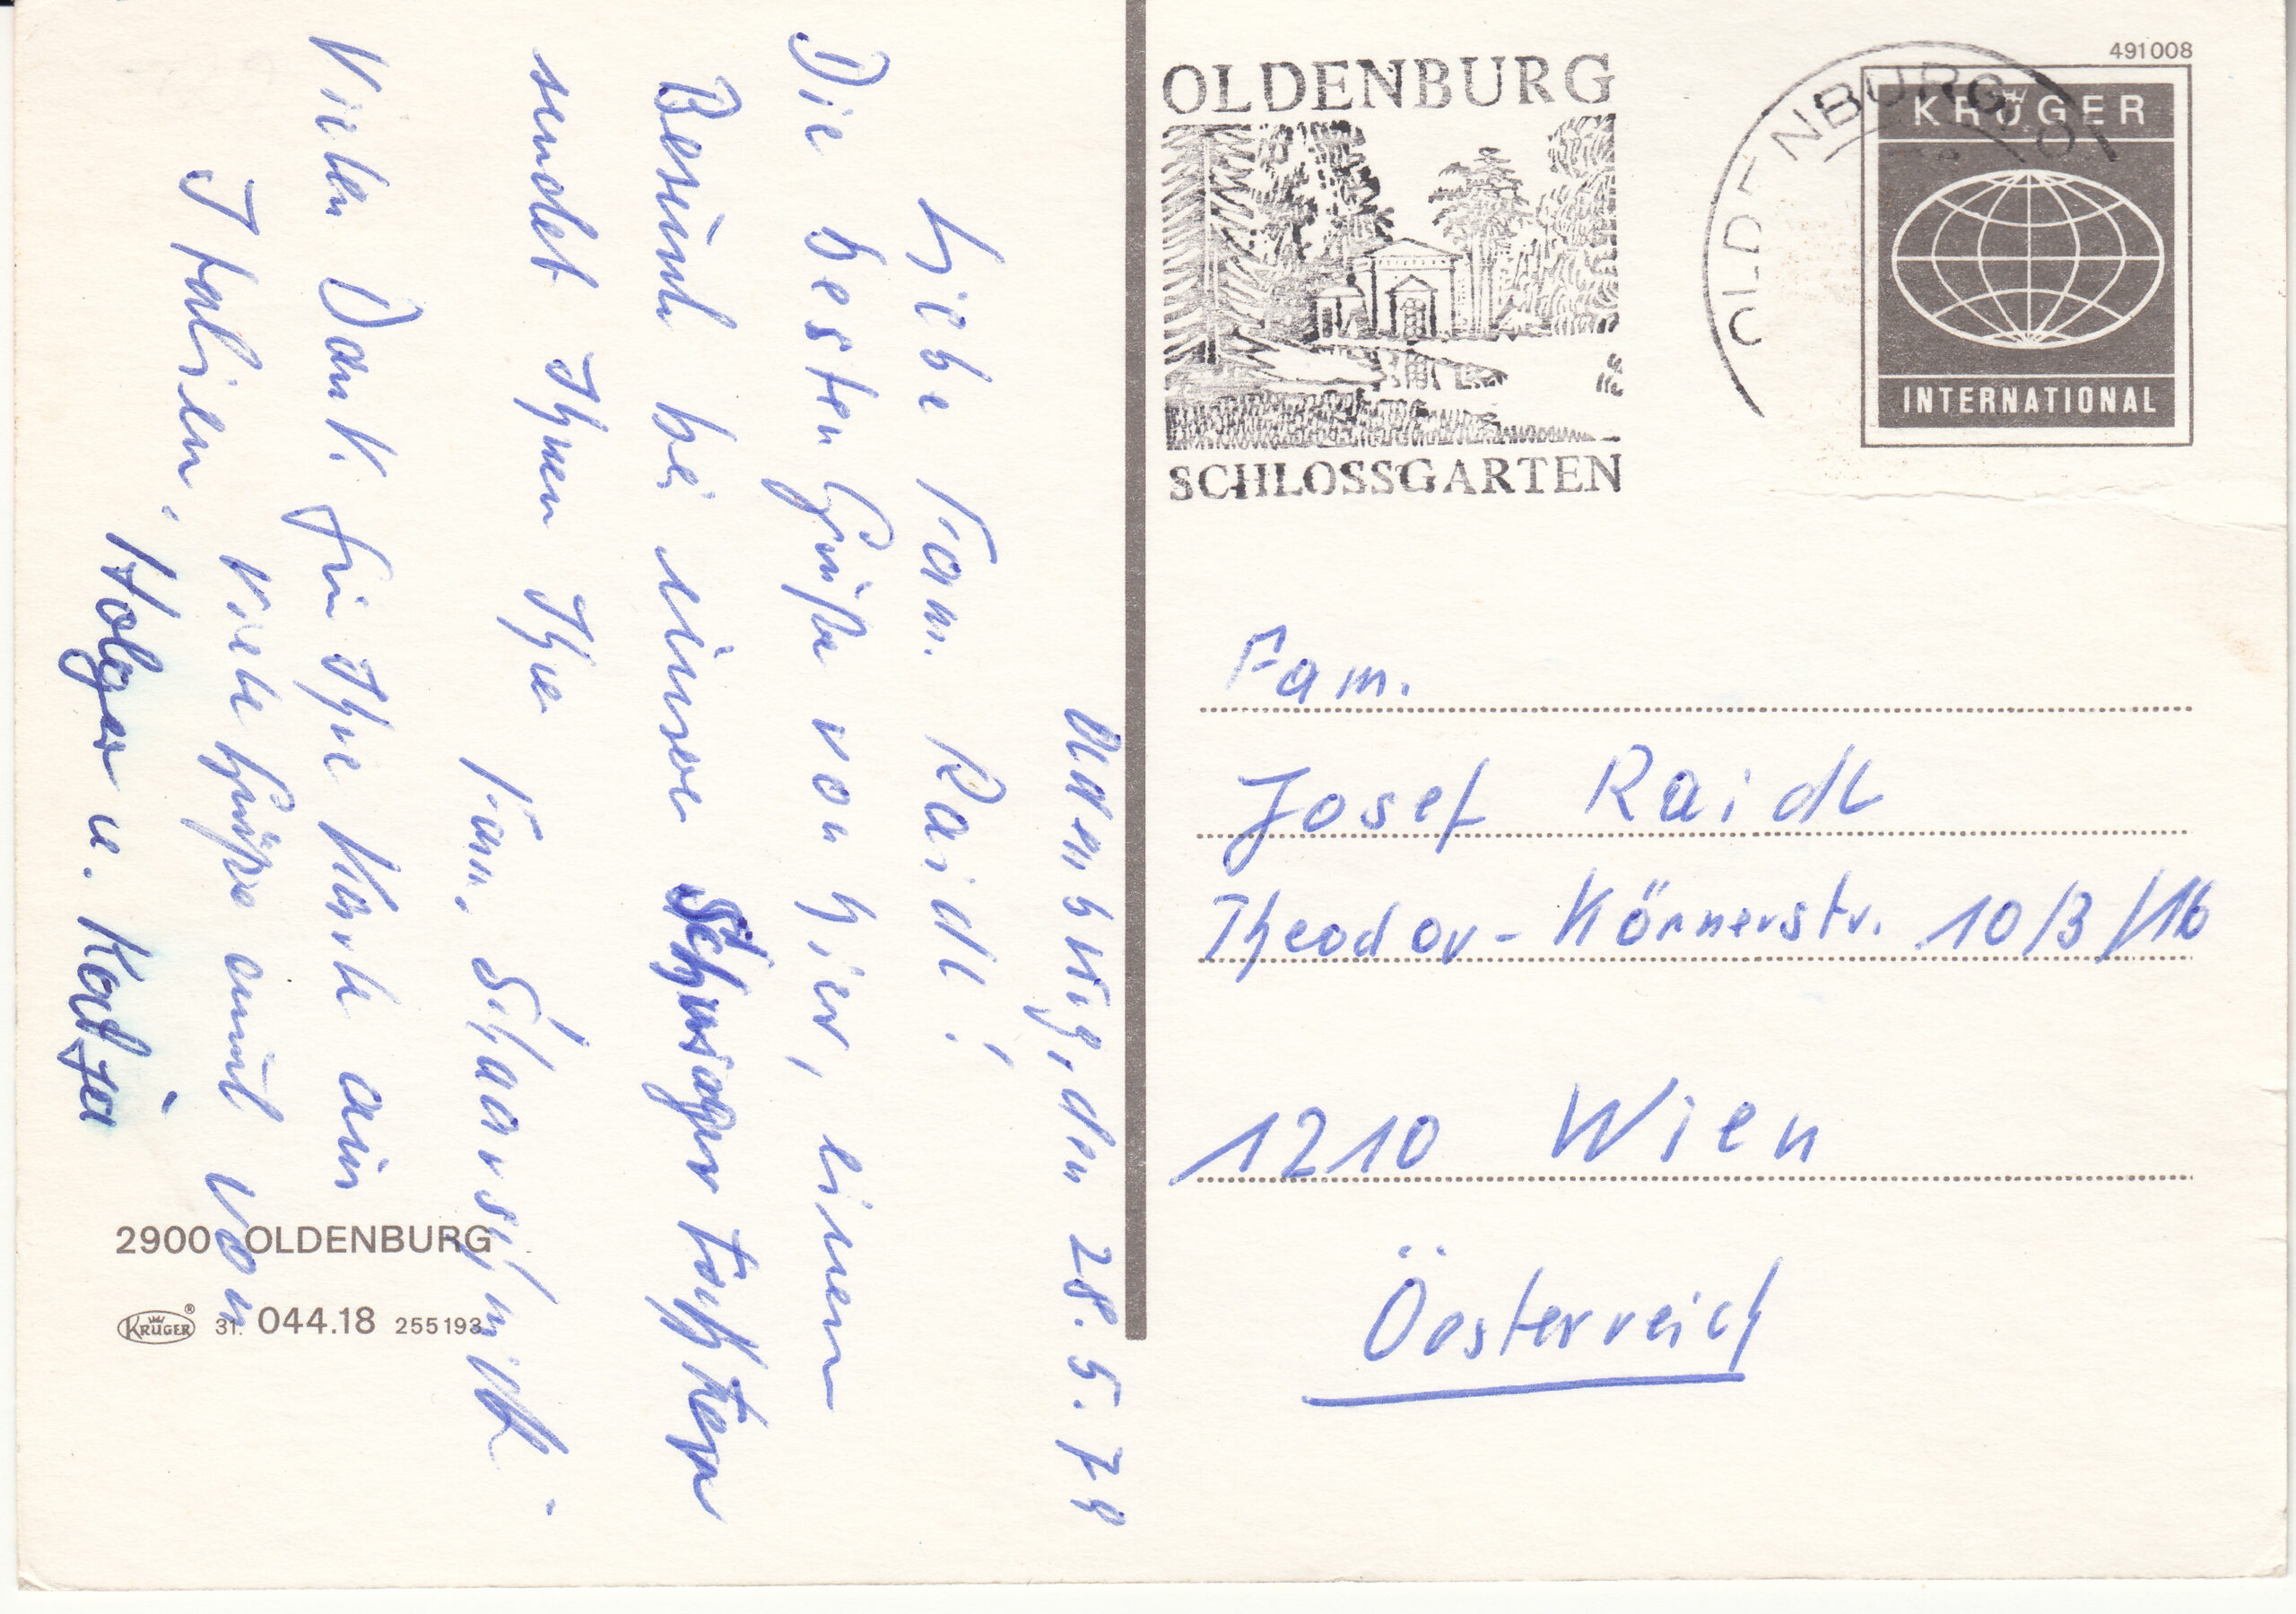 OLDENBURG
SCHLOSSGARTEN
OLDENBURG (OL
491008
KRÜGER
INTERNATIONAL
den 28.5.78
Liebe Fam. Raidl!
Die besten Grüße von hier, einem
Besuch bei einer
sendet Ihnen Ihre
Fam.
Vielen Dank für Ihre Karte aus
Italien,
viele Grüße auch von
Holger u. Katja
Fam.
Josef Raidl
Theodor-Körnerstr. 10/3/16
1210 Wien
Österreich
2900 OLDENBURG
KRÜGER® 31. 044.18 255193